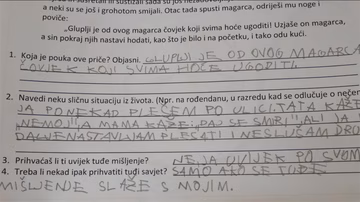 a neki su se još i grohotom smijali. Otac tada spusti magarca, odriješi mu noge i
poviče:
„Gluplji je od ovog magarca čovjek koji svima hoće ugoditi! Uzjaše on magarca,
a sin pokraj njih nastavi hodati, kao što je bilo i na početku, i tako odu kući.
1. Koja je pouka ove priče? Objasni. GLUPLJI JE OD OVOG MAGARCA
ČOVJEK KOJI SVIMA HOĆE UGODITI.
2. Navedi neku sličnu situaciju iz života. (Npr. na rođendanu, u razredu kad se odlučuje o nečem
JA PONEKAD PLEŠEM PO ULICI TATA KAŽE
NEMOJ, A MAMA KAŽE: „DAJ SE SMIRI", ALI JA
DALJE NASTAVLJAM PLESATI I NE SLUŠAM
3. Prihvaćaš li ti uvijek tuđe mišljenje? NE, JA UVIJEK PO SVOM
4. Treba li nekad ipak prihvatiti tuđi savjet? SAMO AKO SE TUĐE
MIŠLJENJE SLAŽE S MOJIM.